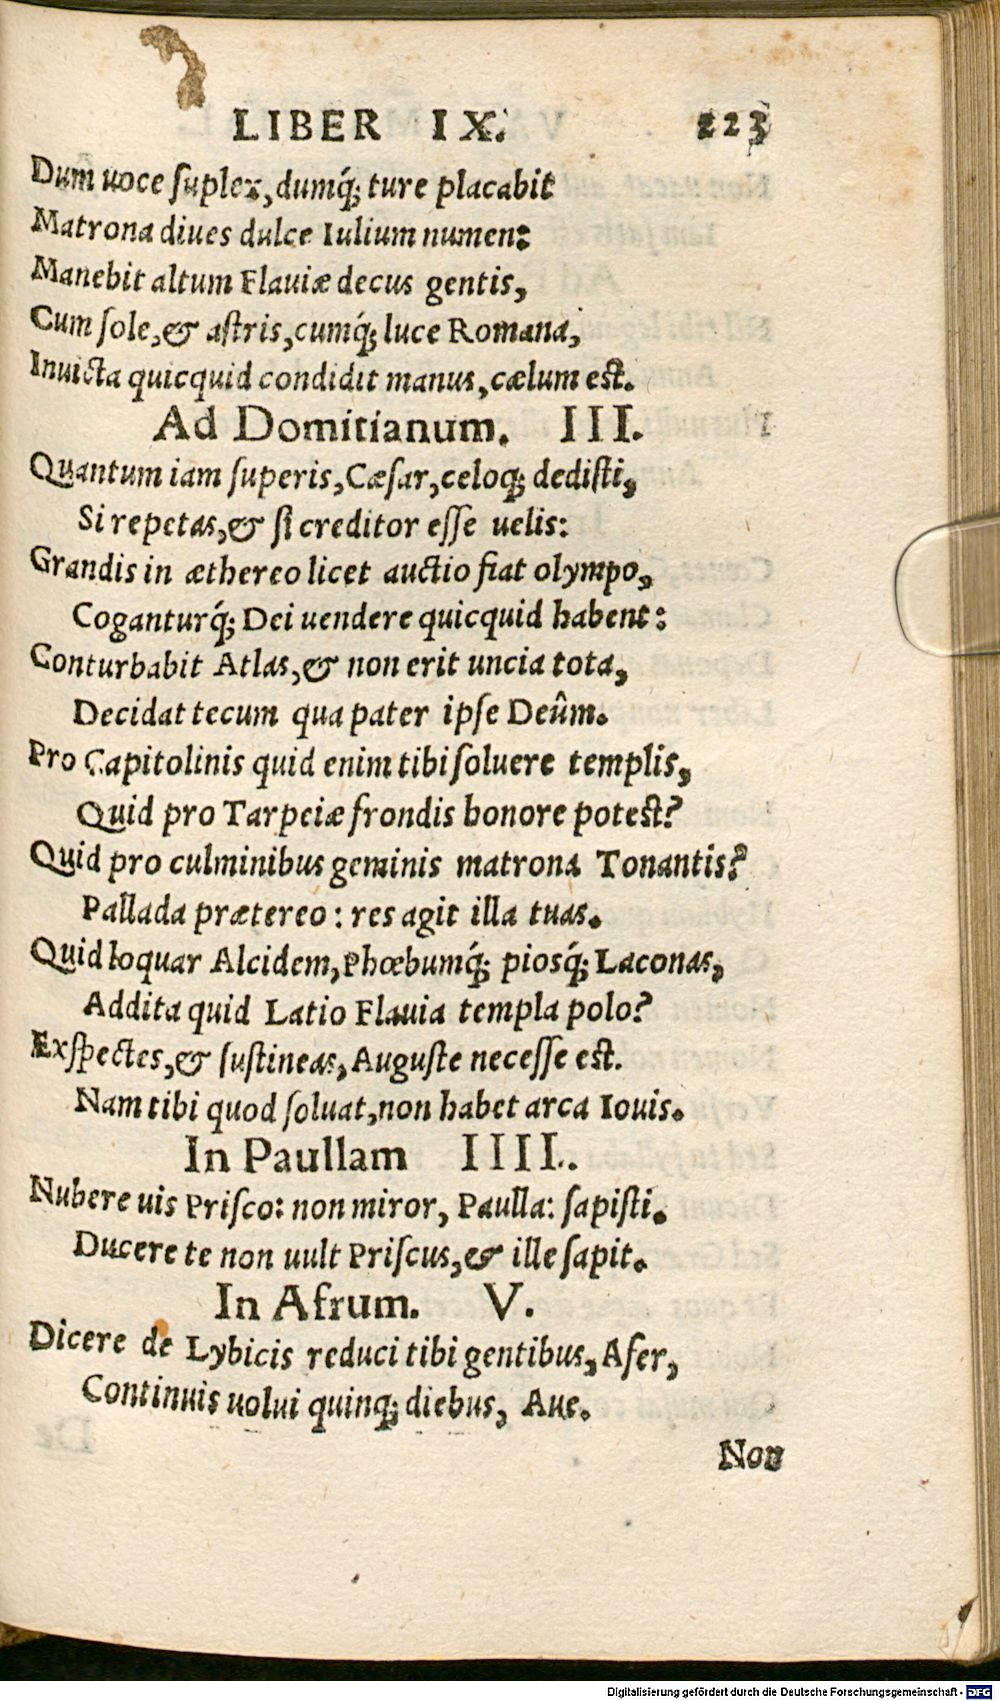 LIBER IX. 223
Dum uoce suplex, dumq́; ture placabit
Matrona diues dulce Iulium numen:
Manebit altum Flauiæ decus gentis,
Cum sole, & astris, cumq́; luce Romana,
Inuicta quicquid condidit manus, cælum est.
Ad Domitianum. III.
Quantum iam superis, Cæsar, celoq; dedisti,
Si repetas, & si creditor esse uelis:
Grandis in æthereo licet auctio fiat olympo,
Coganturq́; Dei uendere quicquid habent:
Conturbabit Atlas, & non erit uncia tota,
Decidat tecum qua pater ipse Deûm.
Pro Capitolinis quid enim tibi soluere templis,
Quid pro Tarpeiæ frondis honore potest?
Quid pro culminibus geminis matrona Tonantis?
Pallada prætereo: res agit illa tuas.
Quid loquar Alcidem, Phœbumq́; piosq́; Laconas,
Addita quid Latio Flauia templa polo?
Exspectes, & sustineas, Auguste necesse est.
Nam tibi quod soluat, non habet arca Iouis.
In Paullam IIII.
Nubere uis Prisco: non miror, Paulla: sapisti.
Ducere te non uult Priscus, & ille sapit.
In Afrum. V.
Dicere de Lybicis reduci tibi gentibus, Afer,
Continuis uolui quinq; diebus, Aue.
Non
Digitalisierung gefördert durch die Deutsche Forschungsgemeinschaft - DFG